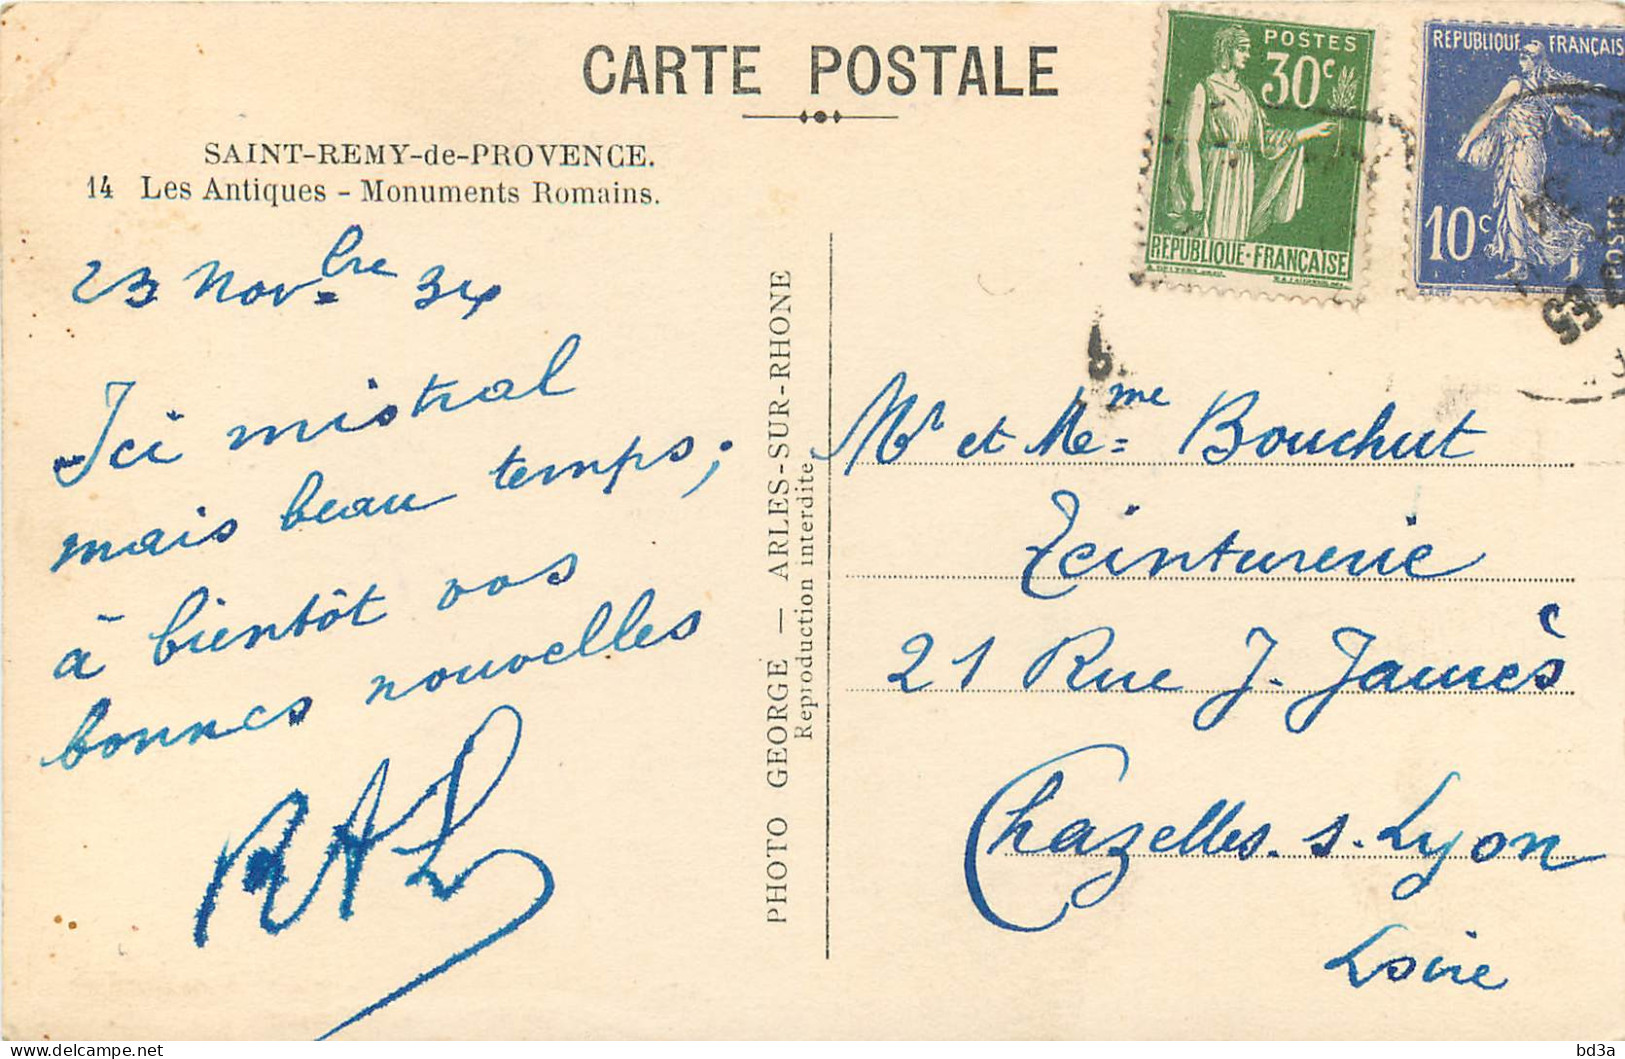 CARTE POSTALE
SAINT-REMY-de-PROVENCE.
14 Les Antiques - Monuments Romains.
23 Nov^bre 34
Ici mistral
mais beau temps;
à bientôt vos
bonnes nouvelles
RAL
PHOTO GEORGE — ARLES-SUR-RHONE
Reproduction interdite
POSTES
30c
REPUBLIQUE·FRANÇAISE
REPUBLIQUE FRANÇAIS
10c
POSTES
Mr et Me=^me Bouchut
Teinturerie
21 Rue J. Jaurès
Chazelles. s. Lyon
Loire
bd3a